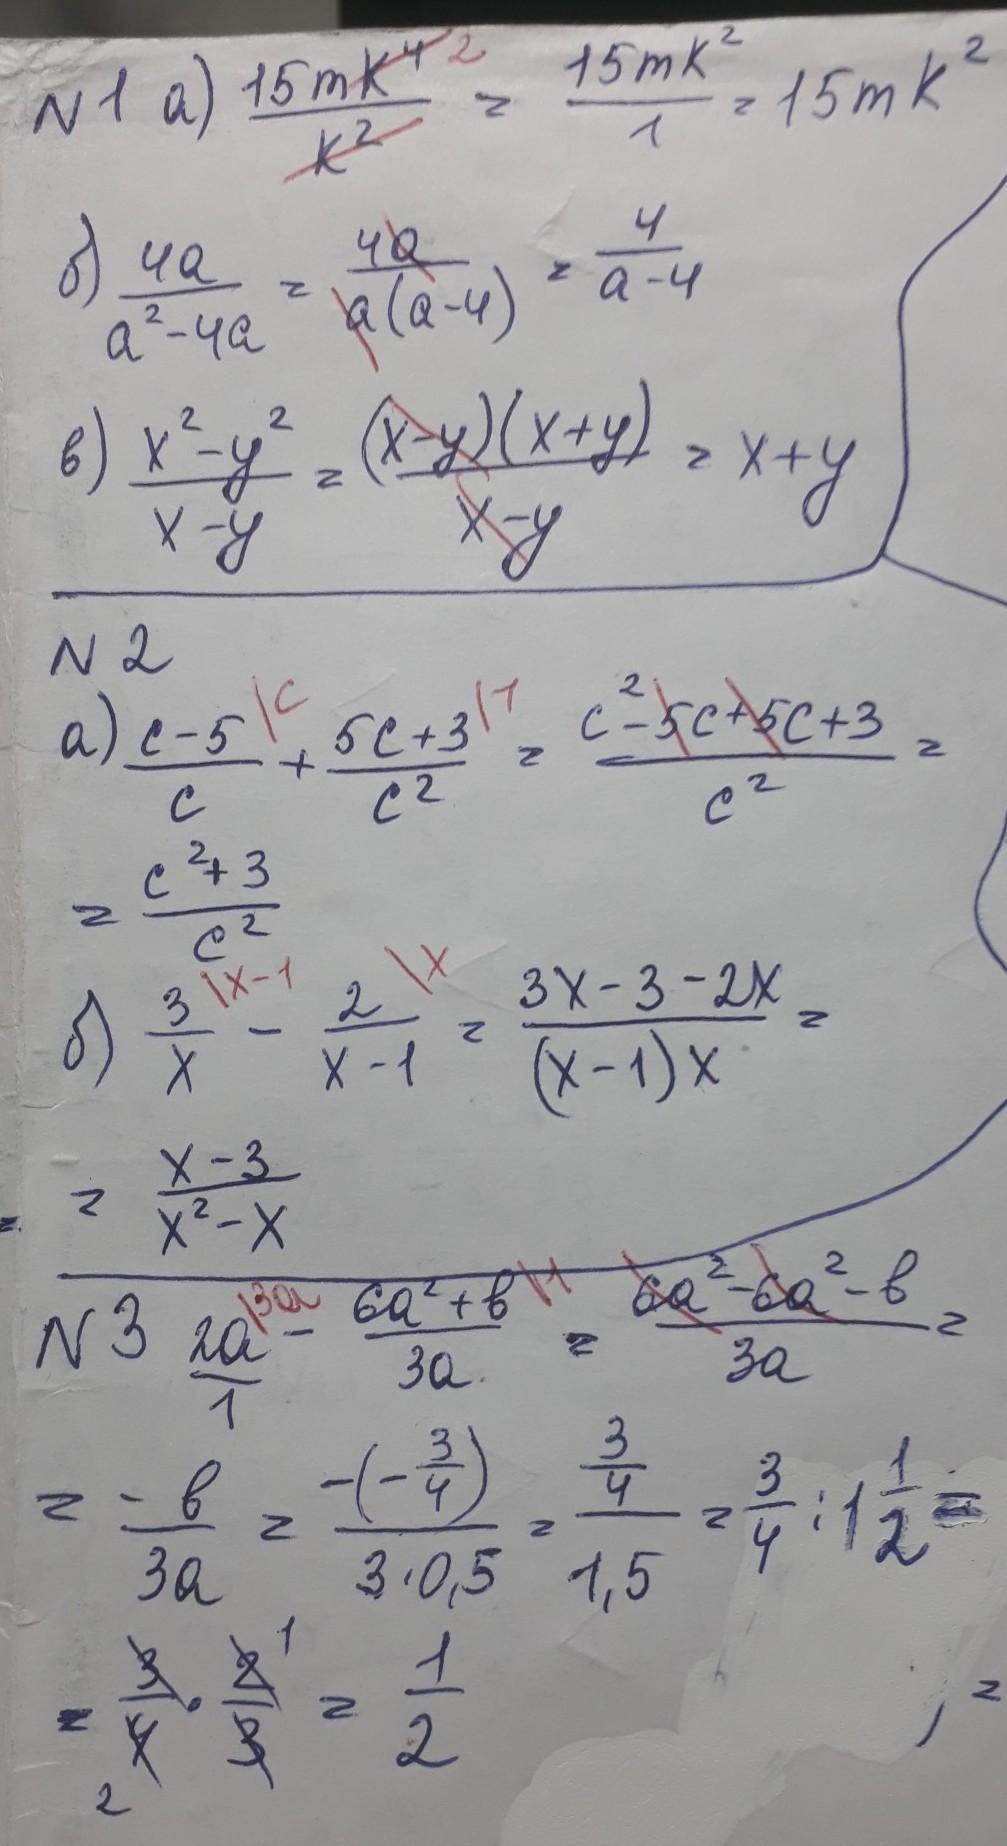 N1 а) 15mk⁴ 2 / k² = 15mk² / 1 = 15mk²
б) 4a / a²-4a = 4a / a(a-4) = 4 / a-4
в) x²-y² / x-y = (x-y)(x+y) / x-y = x+y
N2
а) c-5 / c |c + 5c+3 / c² |1 = c²-5c+5c+3 / c² =
= c²+3 / c²
б) 3 / x |x-1 - 2 / x-1 |x = 3x-3-2x / (x-1)x =
= x-3 / x²-x
N3 2a / 1 |3a - 6a²+b / 3a |1 = 6a²-6a²-b / 3a =
= -b / 3a = -(-3/4) / 3·0,5 = 3/4 / 1,5 = 3/4 : 1 1/2 =
= 3/4 2 · 2/3 1 = 1/2 , =